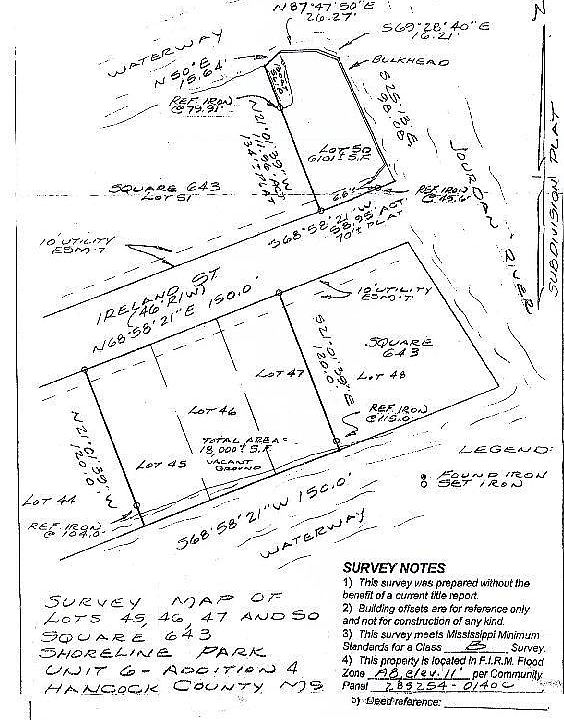 N87°47'50"E
26.27'
S69°28'40"E
16.21'
WATERWAY
N50°E
15.64'
BULKHEAD
REF. IRON
@ 79.91'
S25°13'E
98.68'
N21°01'39"W
134'± PLAT
LOT 50
6101± S.F.
JOURDAN RIVER
SUBDIVISION PLAT
SQUARE 643
LOT 51
6.6'
REF. IRON
@ 45.6'
S68°58'21"W
58.95' ACT
70'± PLAT
10' UTILITY
ESM'T
IRELAND ST
(46' R/W)
N68°58'21"E 150.0'
10' UTILITY
ESM'T
SQUARE
643
S21°01'39"E
120.0'
LOT 47
LOT 48
LOT 46
REF. IRON
@ 115.0'
N21°01'39"W
120.0'
TOTAL AREA=
18,000± S.F.
VACANT
GROUND
LOT 45
LOT 44
REF. IRON
@ 104.0'
S68°58'21"W 150.0'
WATERWAY
LEGEND:
FOUND IRON
SET IRON
SURVEY MAP OF
LOTS 45, 46, 47 AND 50
SQUARE 643
SHORELINE PARK
UNIT 6 - ADDITION 4
HANCOCK COUNTY, MS
SURVEY NOTES
1) This survey was prepared without the
benefit of a current title report.
2) Building offsets are for reference only
and not for construction of any kind.
3) This survey meets Mississippi Minimum
Standards for a Class B Survey.
4) This property is located in F.I.R.M. Flood
Zone A8, elev. 11' per Community
Panel 285254-0140C
5) Deed reference: